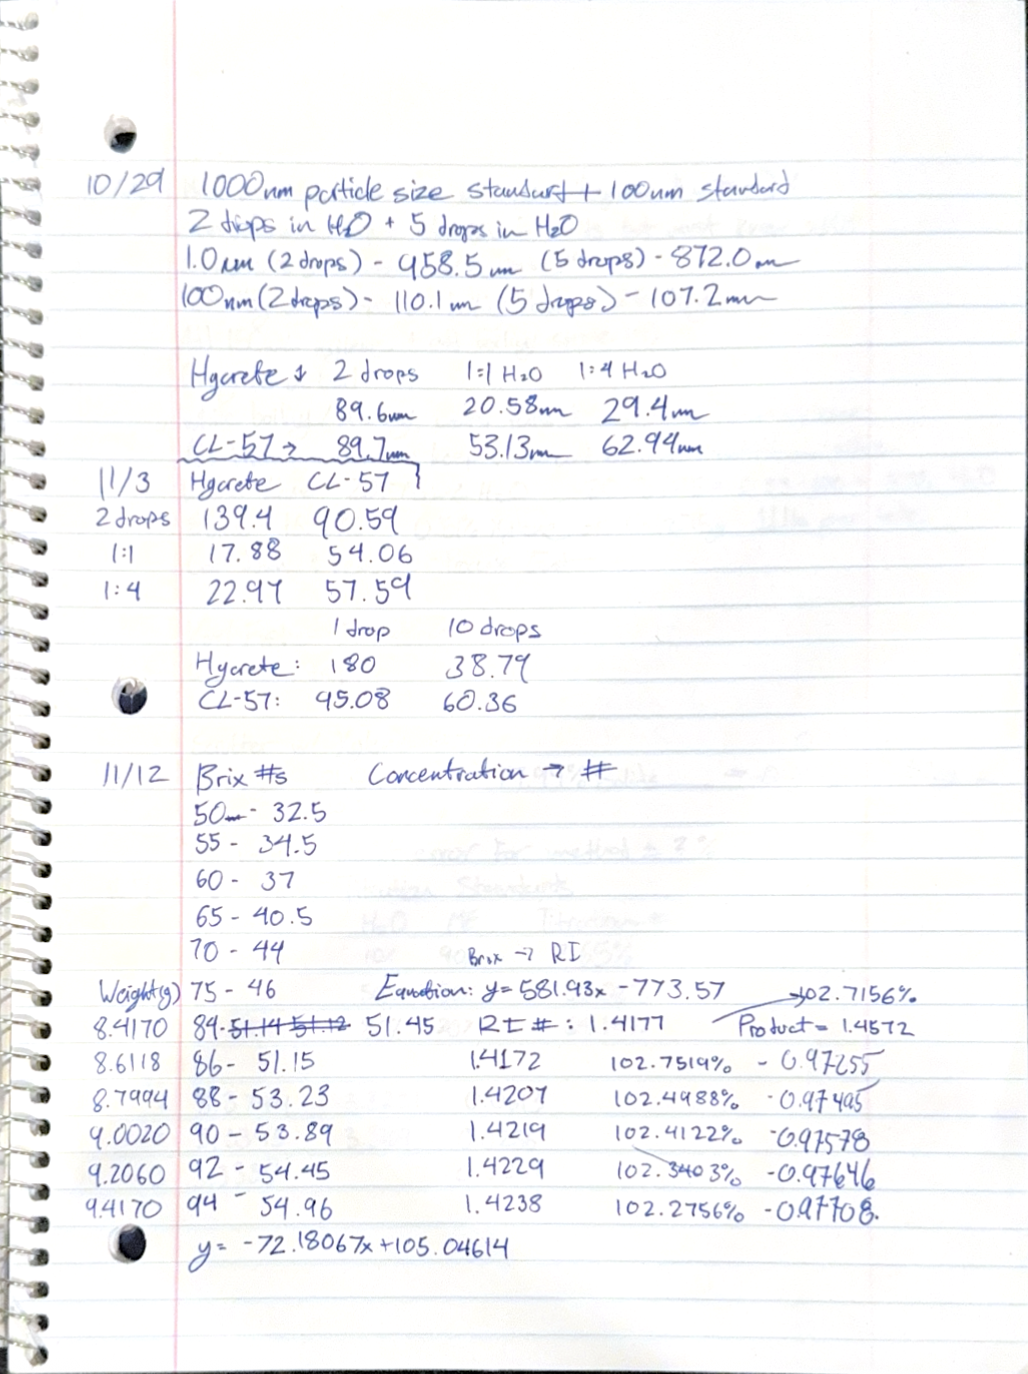 10/29 1000nm particle size standard + 100nm standard
2 drops in H2O + 5 drops in H2O
1.0um (2 drops) - 958.5nm (5 drops) - 872.0nm
100nm (2 drops) - 110.1nm (5 drops) - 107.2nm
Hycrete ↓ 2 drops 1:1 H2O 1:4 H2O
89.6nm 20.58nm 29.4nm
CL-57 → 89.7nm 53.13nm 62.94nm
11/3 Hycrete CL-57
2 drops 139.4 90.59
1:1 17.88 54.06
1:4 22.97 57.59
1 drop 10 drops
Hycrete: 180 38.79
CL-57: 95.08 60.36
11/12 Brix #s Concentration → #
50 - 32.5
55 - 34.5
60 - 37
65 - 40.5
70 - 44 Brix → RI
Weight(g) 75 - 46 Equation: y = 581.93x - 773.57 102.7156%
8.4170 84 - 51.14 51.12 51.45 RI #: 1.4177 Product = 1.4572
8.6118 86 - 51.15 1.4172 102.7519% - 0.97255
8.7994 88 - 53.23 1.4207 102.4988% - 0.97495
9.0020 90 - 53.89 1.4219 102.4122% - 0.97578
9.2060 92 - 54.45 1.4229 102.3403% - 0.97646
9.4170 94 - 54.96 1.4238 102.2756% - 0.97708
y = -72.18067x + 105.04614